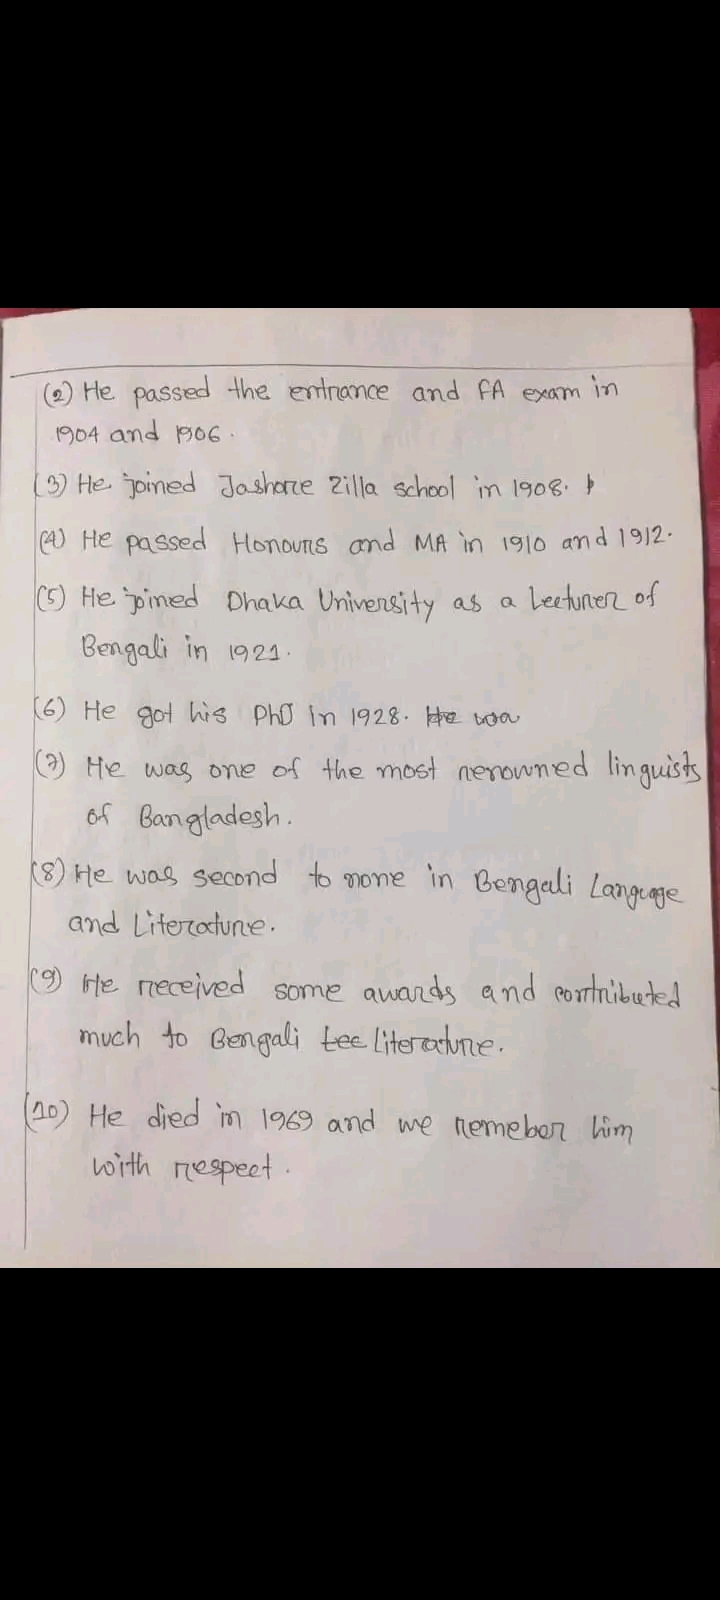 (2) He passed the entrance and FA exam in
1904 and 1906.
(3) He joined Jashore Zilla school in 1908.
(4) He passed Honours and MA in 1910 and 1912.
(5) He joined Dhaka University as a Lecturer of
Bengali in 1921.
(6) He got his PhD in 1928. He wa
(7) He was one of the most renowned linguists
of Bangladesh.
(8) He was second to none in Bengali Language
and Literature.
(9) He received some awards and contributed
much to Bengali lec literature.
(10) He died in 1969 and we remeber him
with respect.